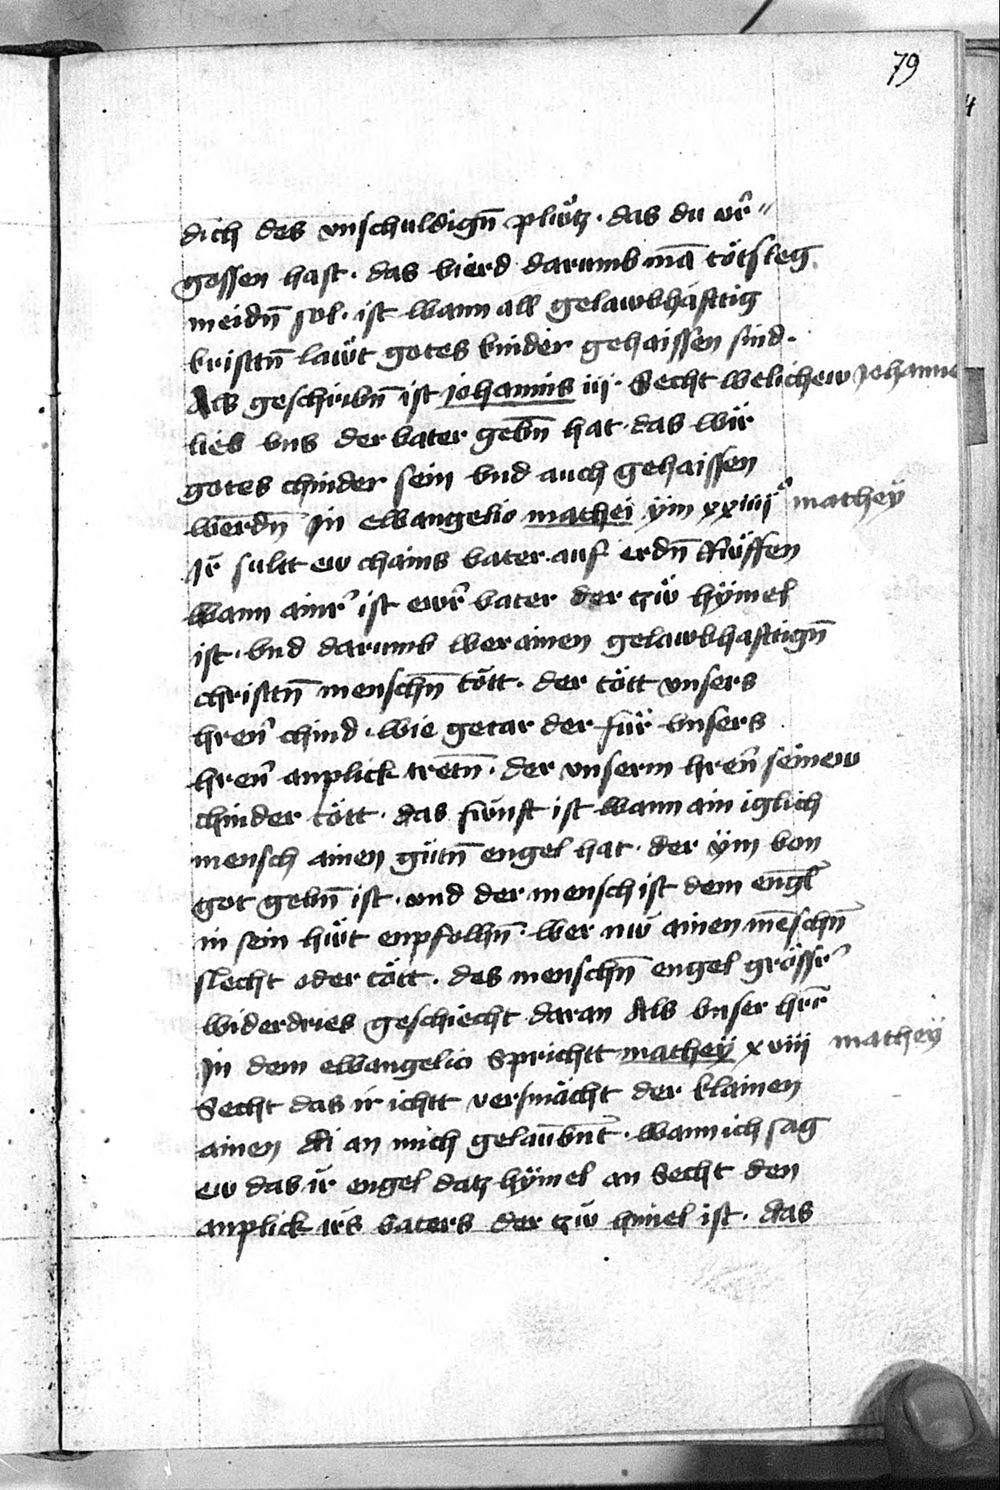 79
dich des vnschuldign̄ plwͦtz · das du v̄r〃
gossen hast · das vierd darumb mā tötsleg
meidn̄ sol · ist wann all gelawbhäfftig
kristn̄ lawͤt gotes kinder gehaissen sind ·
Als geschribn̄ ist johannis iij · Secht welichew Johanne
lieb vns der vater gebn̄ hat · das wir
gotes chinder sein vnd auch gehaissen
werdn̄ Jn ewangelio mathei ym xxiiij° mathey
Jr sultt ew chains vater · auf erdn̄ Rüffen
Wann ainr̄ ist ewr̄ vater der tzw hÿmel
ist · vnd darumb wer ainen gelawbhafftign̄
christn̄ menschn̄ tött · der tött vnsers
hren̄ chind · wie getar der für vnsers
hren̄ anplick tretn̄ · der vnserm hren̄ seinew
chinder tött · das fünft ist wann ain iglich
mensch ainen gütn̄ engel hat · der ÿm von
got gebn̄ ist · vnd der mensch ist dem engl̄
in sein hwͤt enpfolhn̄ · wer nw ainen mēschn̄
slecht oder tött · des menschn̄ engel grössr̄
widerdries geschiecht daran Als vnser hr̄r
Jn dem ewangelio Sprichtt mathey xviij mathey
Secht das ir ichtt versmächt der klainen
ainen di an mich gelaubn̄t · wann ich sag
ew das ir engel datz hÿmel an Secht den
anplick irs vaters der tzw himel ist · das